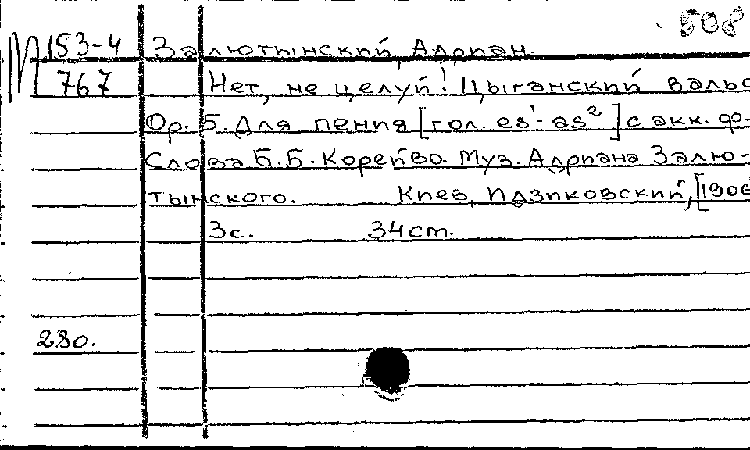 508
М 153-4 Залютынский, Адриан.
767 Нет, не целуй! Цыганский вальс
Ор. 5. Для пения [гол. es¹-as²] с акк. фо-
Слова Б.Б. Корейво. Муз. Адриана Залю-
тынского. Киев, Идзиковский, [1906
3с. 34см.
280.